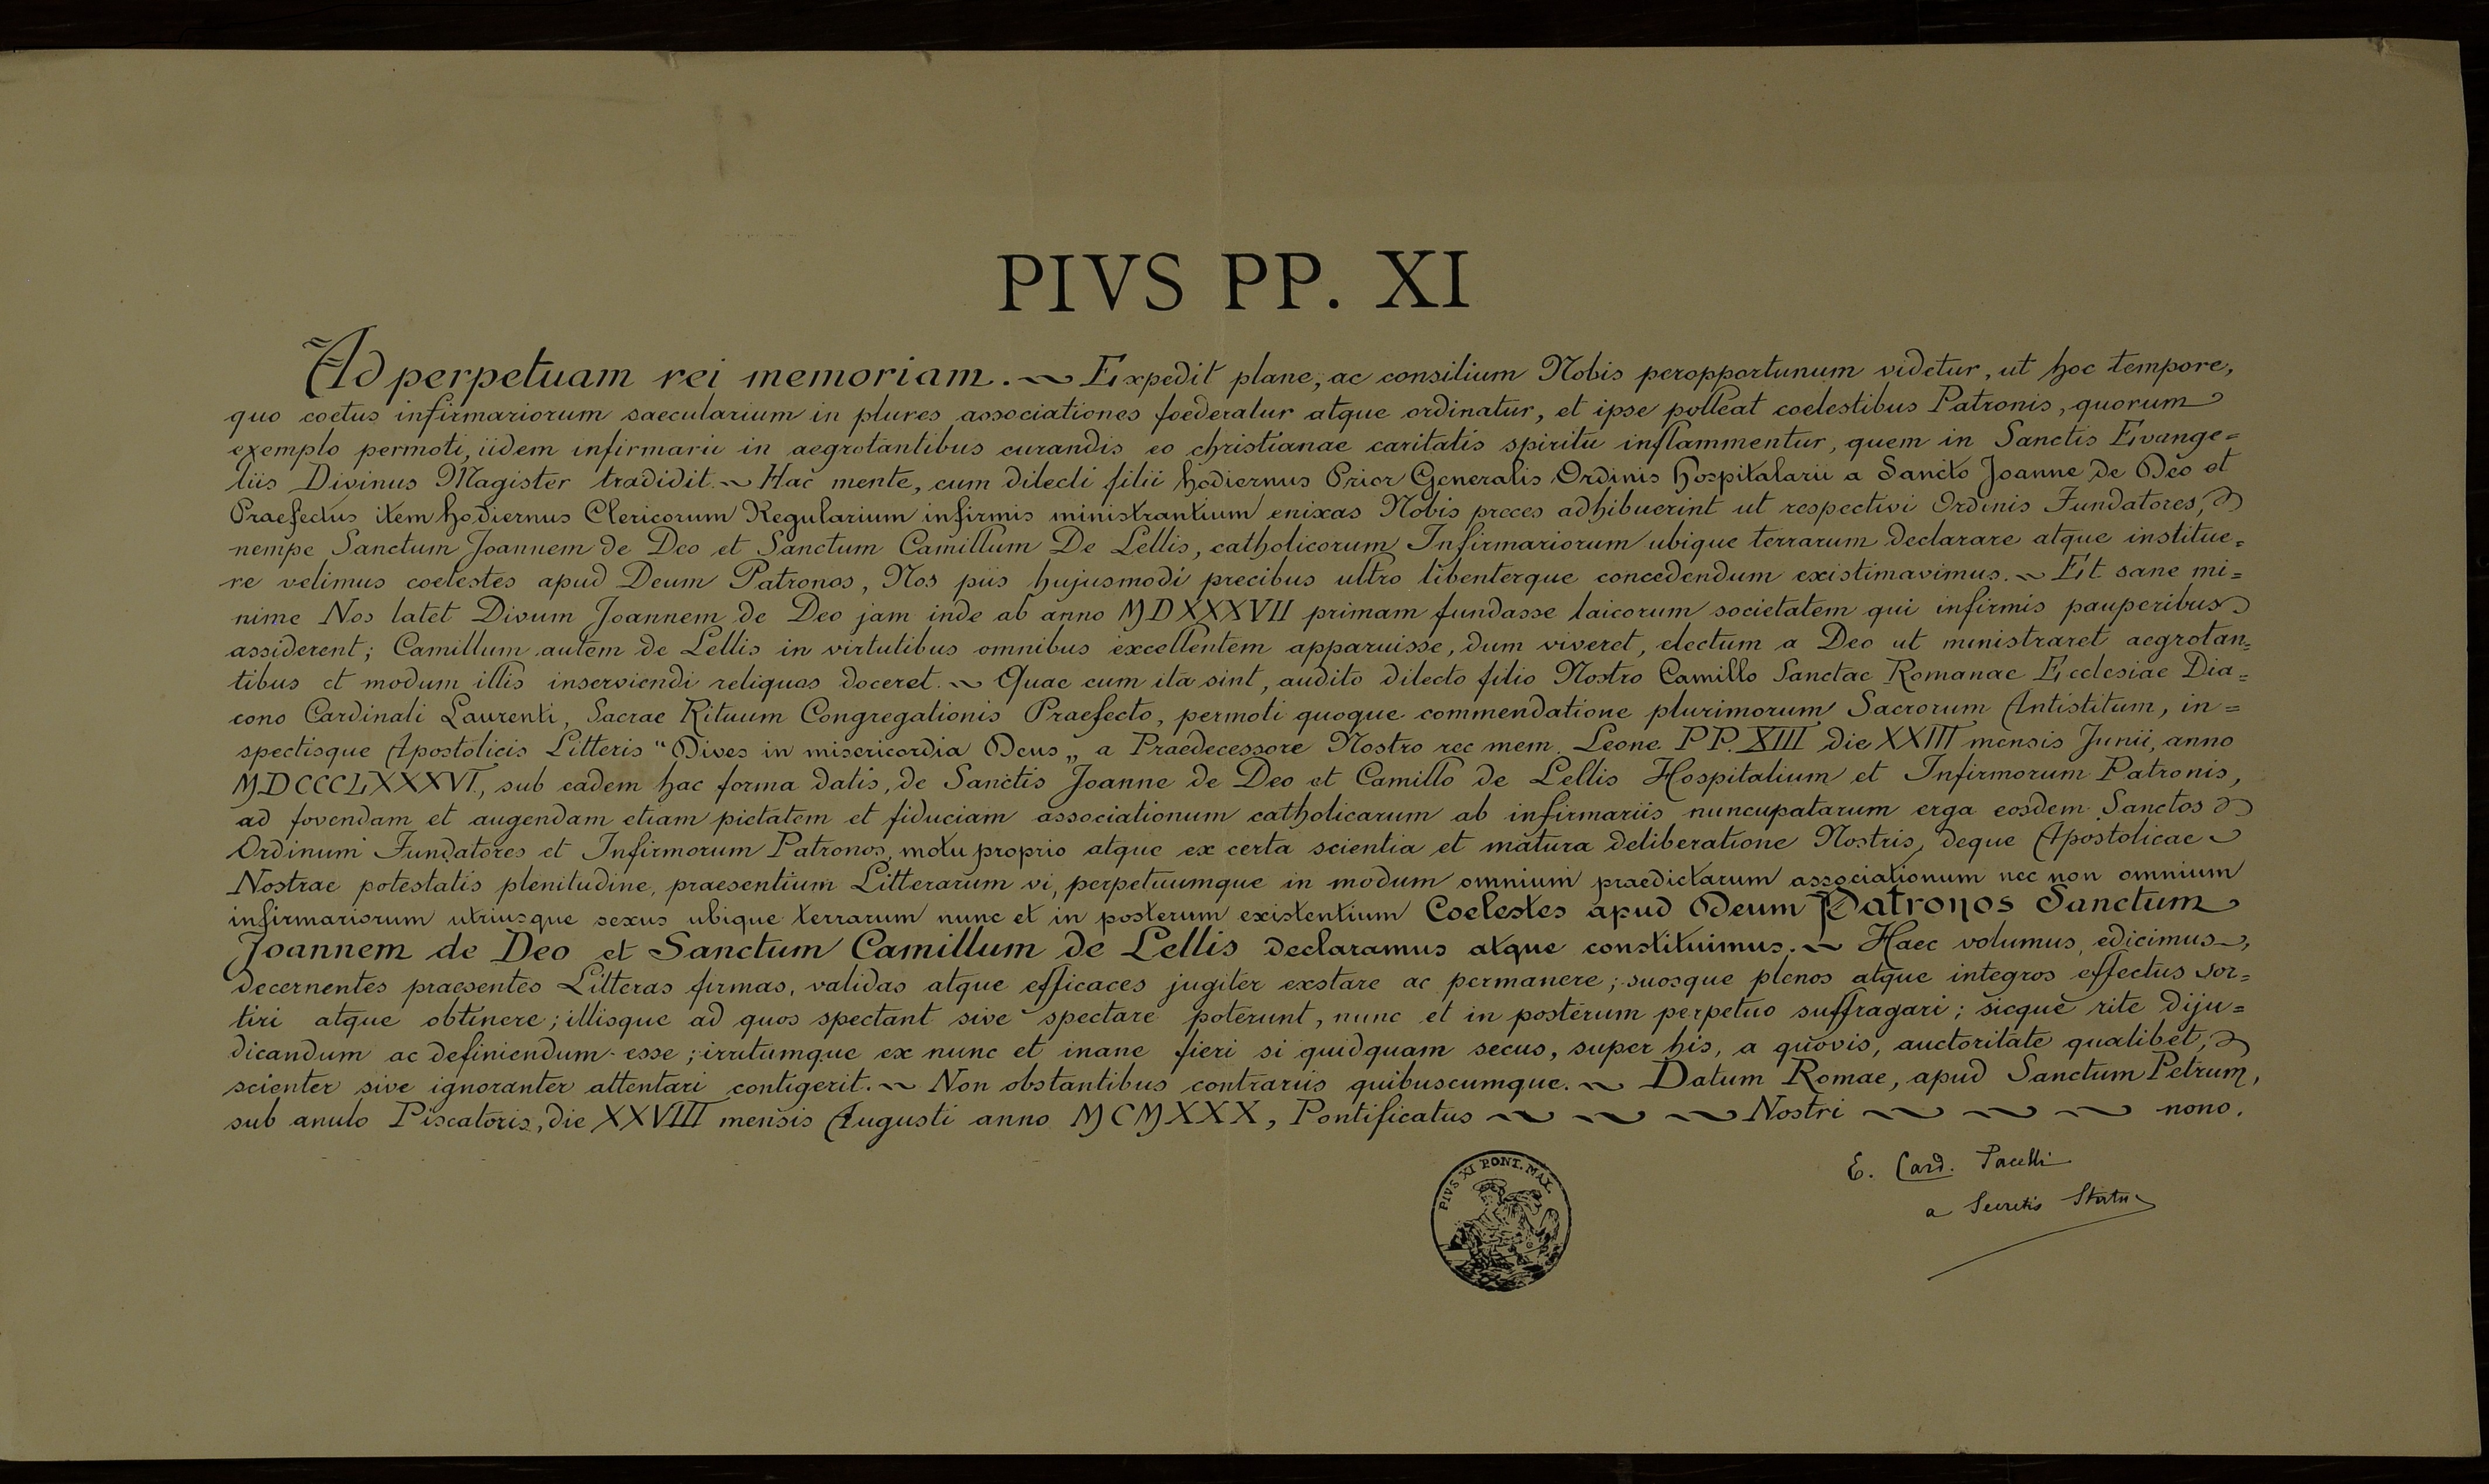 PIVS PP. XI
Ad perpetuam rei memoriam. ~ Expedit plane, ac consilium Nobis peropportunum videtur, ut hoc tempore,
quo coetus infirmariorum saecularium in plures associationes foederatur atque ordinatur, et ipse polleat coelestibus Patronis, quorum
exemplo permoti, iidem infirmarii in aegrotantibus curandis eo christianae caritatis spiritu inflammentur, quem in Sanctis Evange=
liis Divinus Magister tradidit. ~ Hac mente, cum dilecti filii hodiernus Prior Generalis Ordinis Hospitalarii a Sancto Joanne de Deo et
Praefectus item hodiernus Clericorum Regularium infirmis ministrantium enixas Nobis preces adhibuerint ut respectivi Ordinis Fundatores,
nempe Sanctum Joannem de Deo et Sanctum Camillum De Lellis, catholicorum Infirmariorum ubique terrarum declarare atque institue=
re velimus coelestes apud Deum Patronos, Nos piis hujusmodi precibus ultro libenterque concedendum existimavimus. ~ Et sane mi=
nime Nos latet Divum Joannem de Deo jam inde ab anno MDXXXVII primam fundasse laicorum societatem qui infirmis pauperibus
assiderent; Camillum autem de Lellis in virtutibus omnibus excellentem apparuisse, dum viveret, electum a Deo ut ministraret aegrotan=
tibus et modum illis inserviendi reliquos doceret. ~ Quae cum ita sint, audito dilecto filio Nostro Camillo Sanctae Romanae Ecclesiae Dia=
cono Cardinali Laurenti, Sacrae Rituum Congregationis Praefecto, permoti quoque commendatione plurimorum Sacrorum Antistitum, in=
spectisque Apostolicis Litteris "Dives in misericordia Deus„ a Praedecessore Nostro rec mem. Leone PP. XIII die XXIII mensis Junii, anno
MDCCCLXXXVI, sub eadem hac forma datis, de Sanctis Joanne de Deo et Camillo de Lellis Hospitalium et Infirmorum Patronis,
ad fovendam et augendam etiam pietatem et fiduciam associationum catholicarum ab infirmariis nuncupatarum erga eosdem Sanctos
Ordinum Fundatores et Infirmorum Patronos, motu proprio atque ex certa scientia et matura deliberatione Nostris, deque Apostolicae
Nostrae potestatis plenitudine, praesentium Litterarum vi, perpetuumque in modum omnium praedictarum associationum nec non omnium
infirmariorum utriusque sexus ubique terrarum nunc et in posterum existentium Coelestes apud Deum Patronos Sanctum
Joannem de Deo et Sanctum Camillum de Lellis declaramus atque constituimus. ~ Haec volumus, edicimus,
decernentes praesentes Litteras firmas, validas atque efficaces jugiter exstare ac permanere; suosque plenos atque integros effectus sor=
tiri atque obtinere; illisque ad quos spectant sive spectare poterunt, nunc et in posterum perpetuo suffragari; sicque rite diju=
dicandum ac definiendum esse; irritumque ex nunc et inane fieri si quidquam secus, super his, a quovis, auctoritate qualibet,
scienter sive ignoranter attentari contigerit. ~ Non obstantibus contrariis quibuscumque. ~ Datum Romae, apud Sanctum Petrum,
sub anulo Piscatoris, die XXVIII mensis Augusti anno MCMXXX, Pontificatus ~ ~ ~ Nostri ~ ~ ~ nono.
E. Card. Pacelli
a Secretis Status
PIVS XI PONT. MAX.